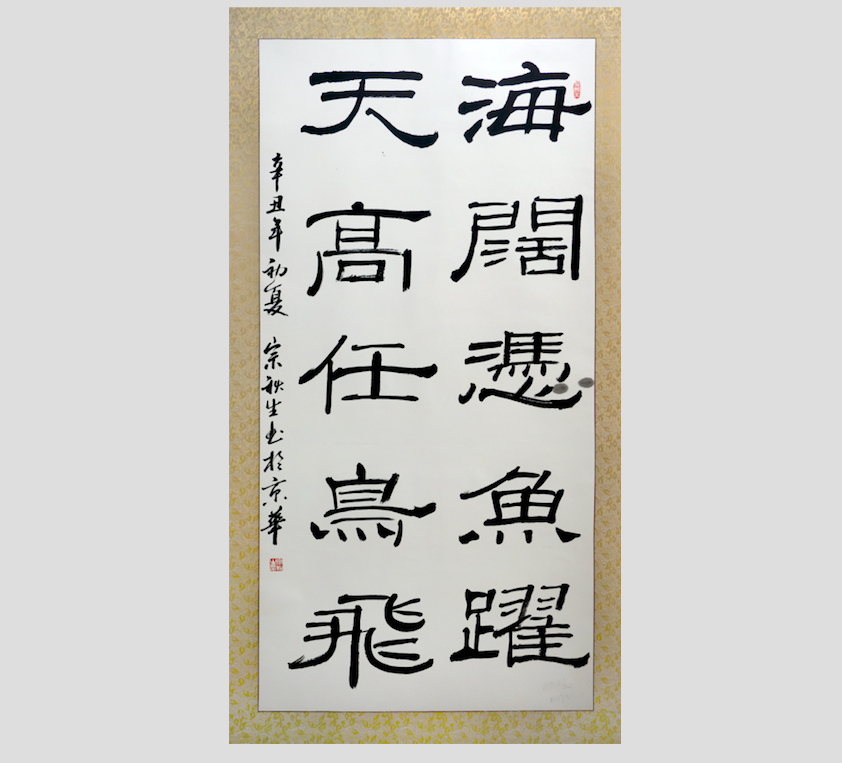 海闊憑魚躍
天高任鳥飛
辛丑年初夏 宗秋生书於京華